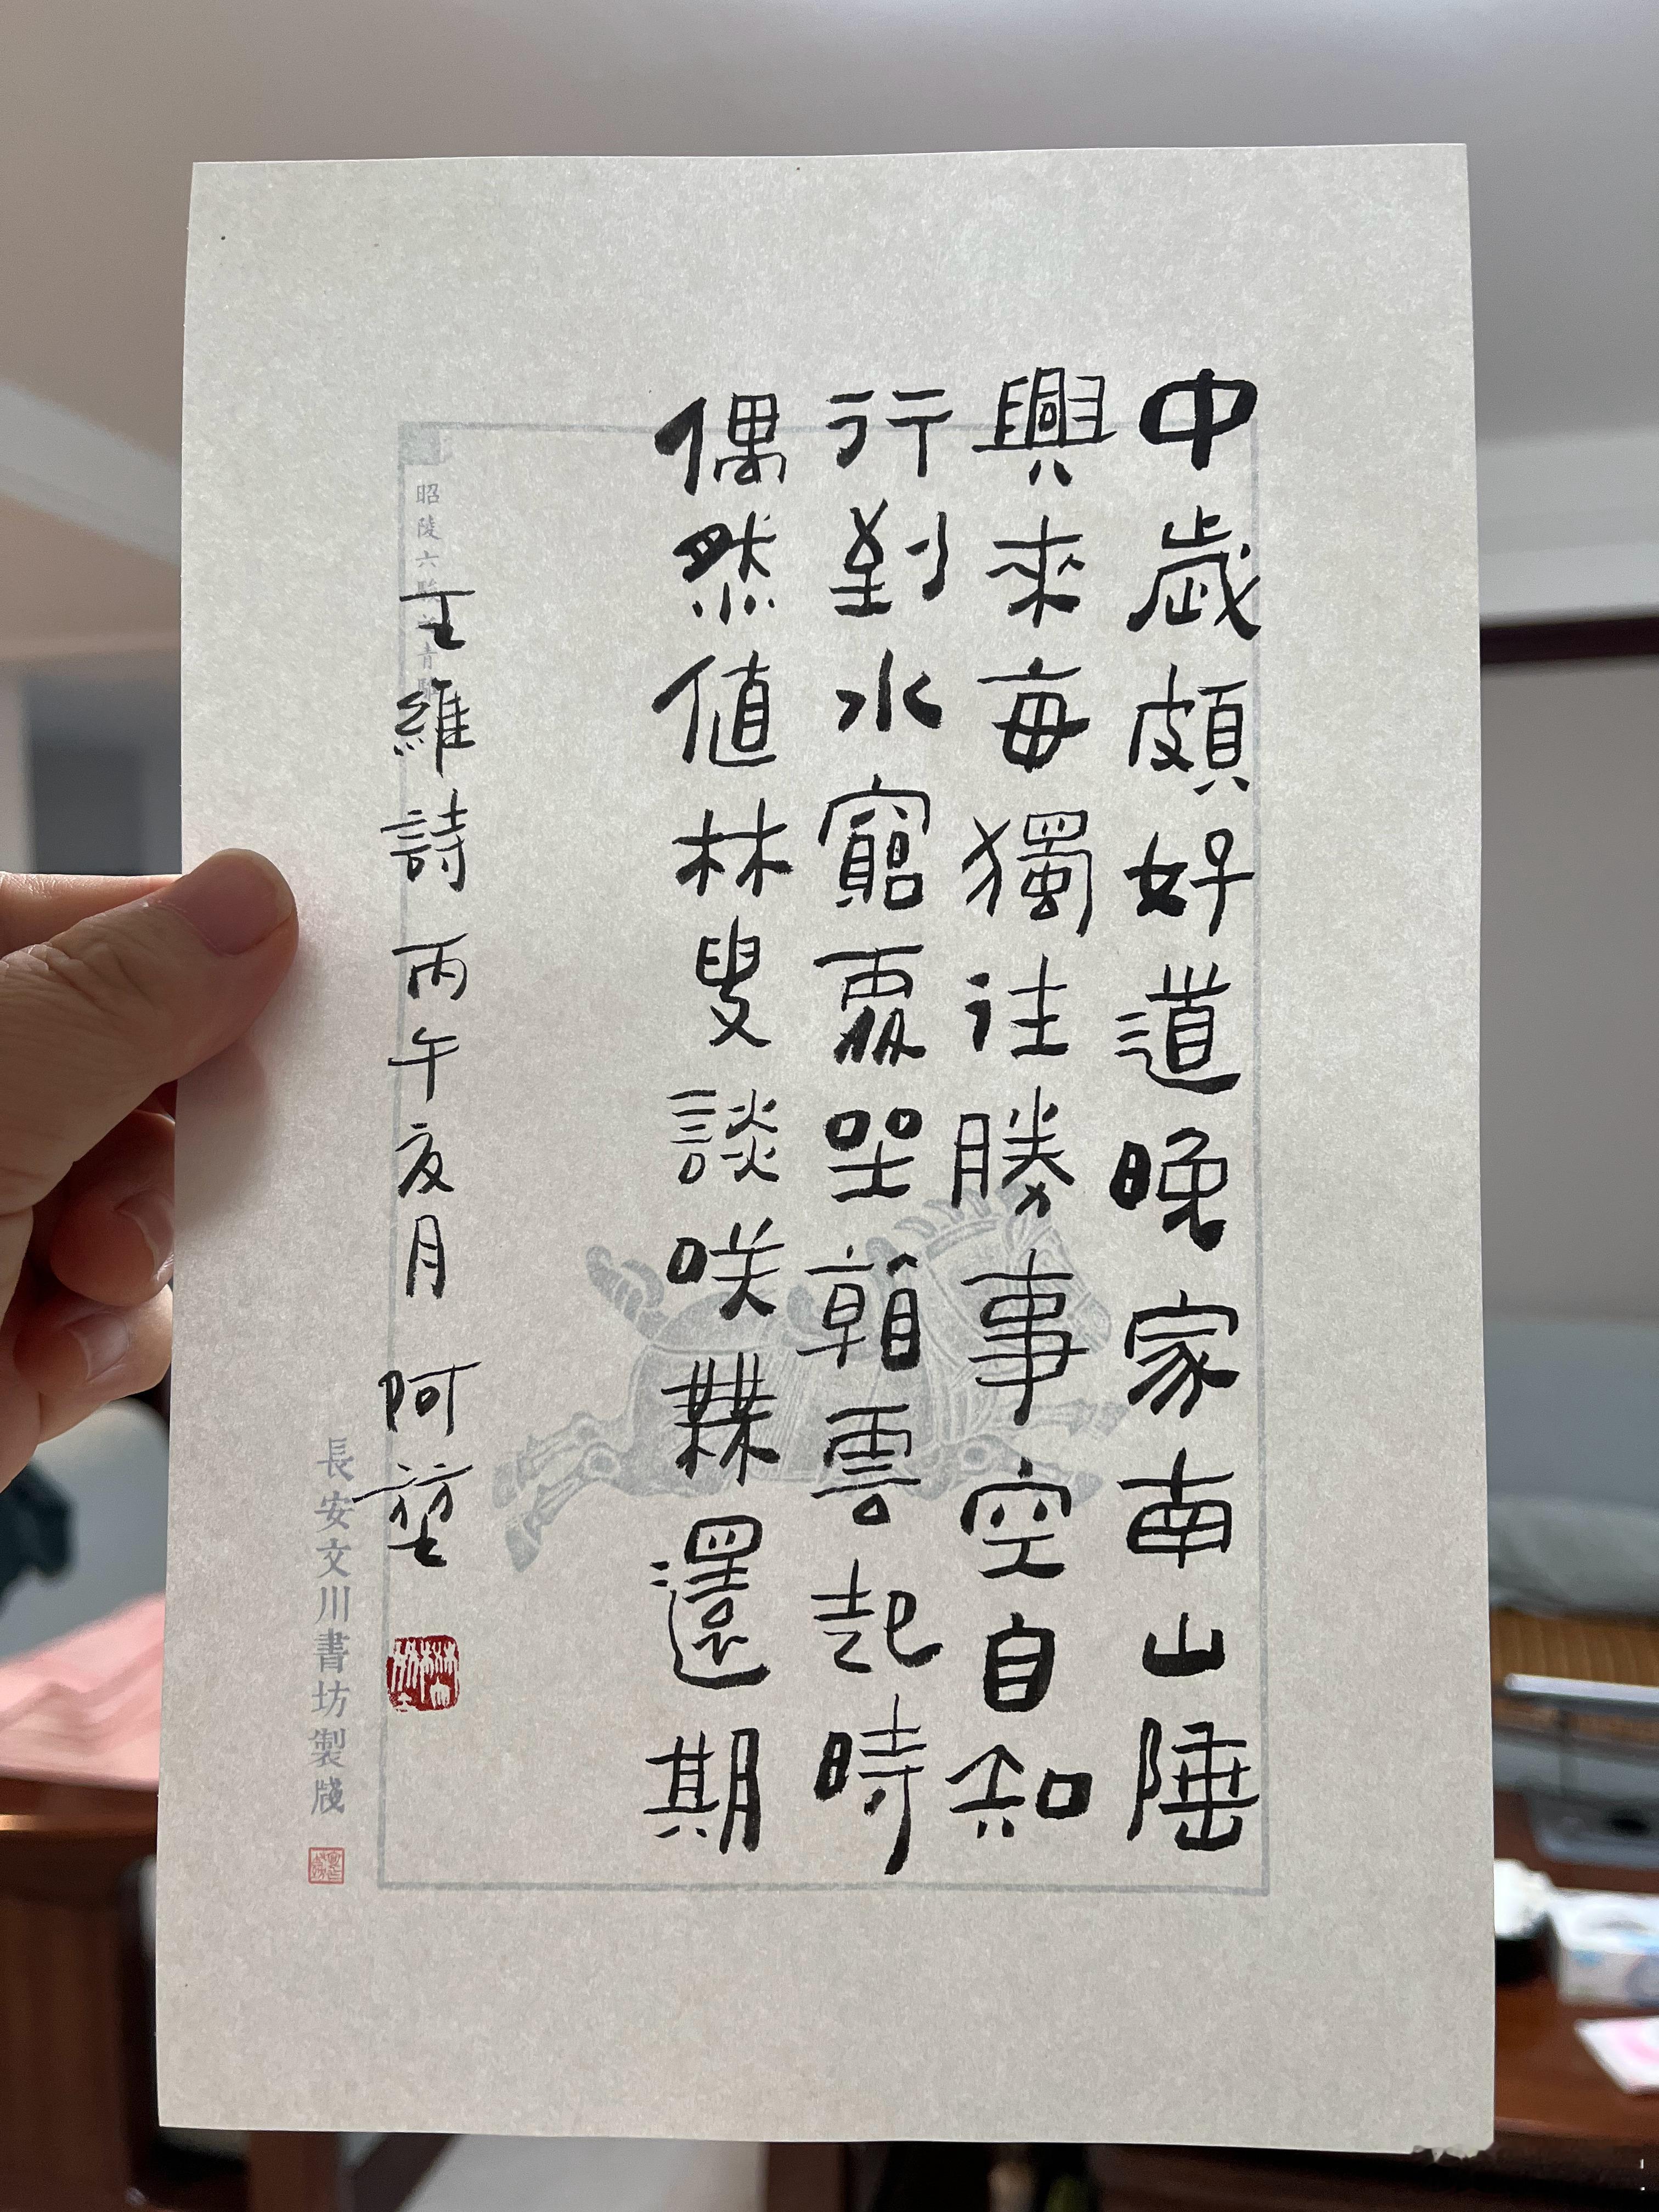 中歲頗好道晚家南山陲
興來每獨往勝事空自知
行到水窮處坐朝雲起時
偶然值林叟談咲無還期
王維詩 丙午亥月 阿堃
昭陵六駿之青騅
長安文川書坊製牋